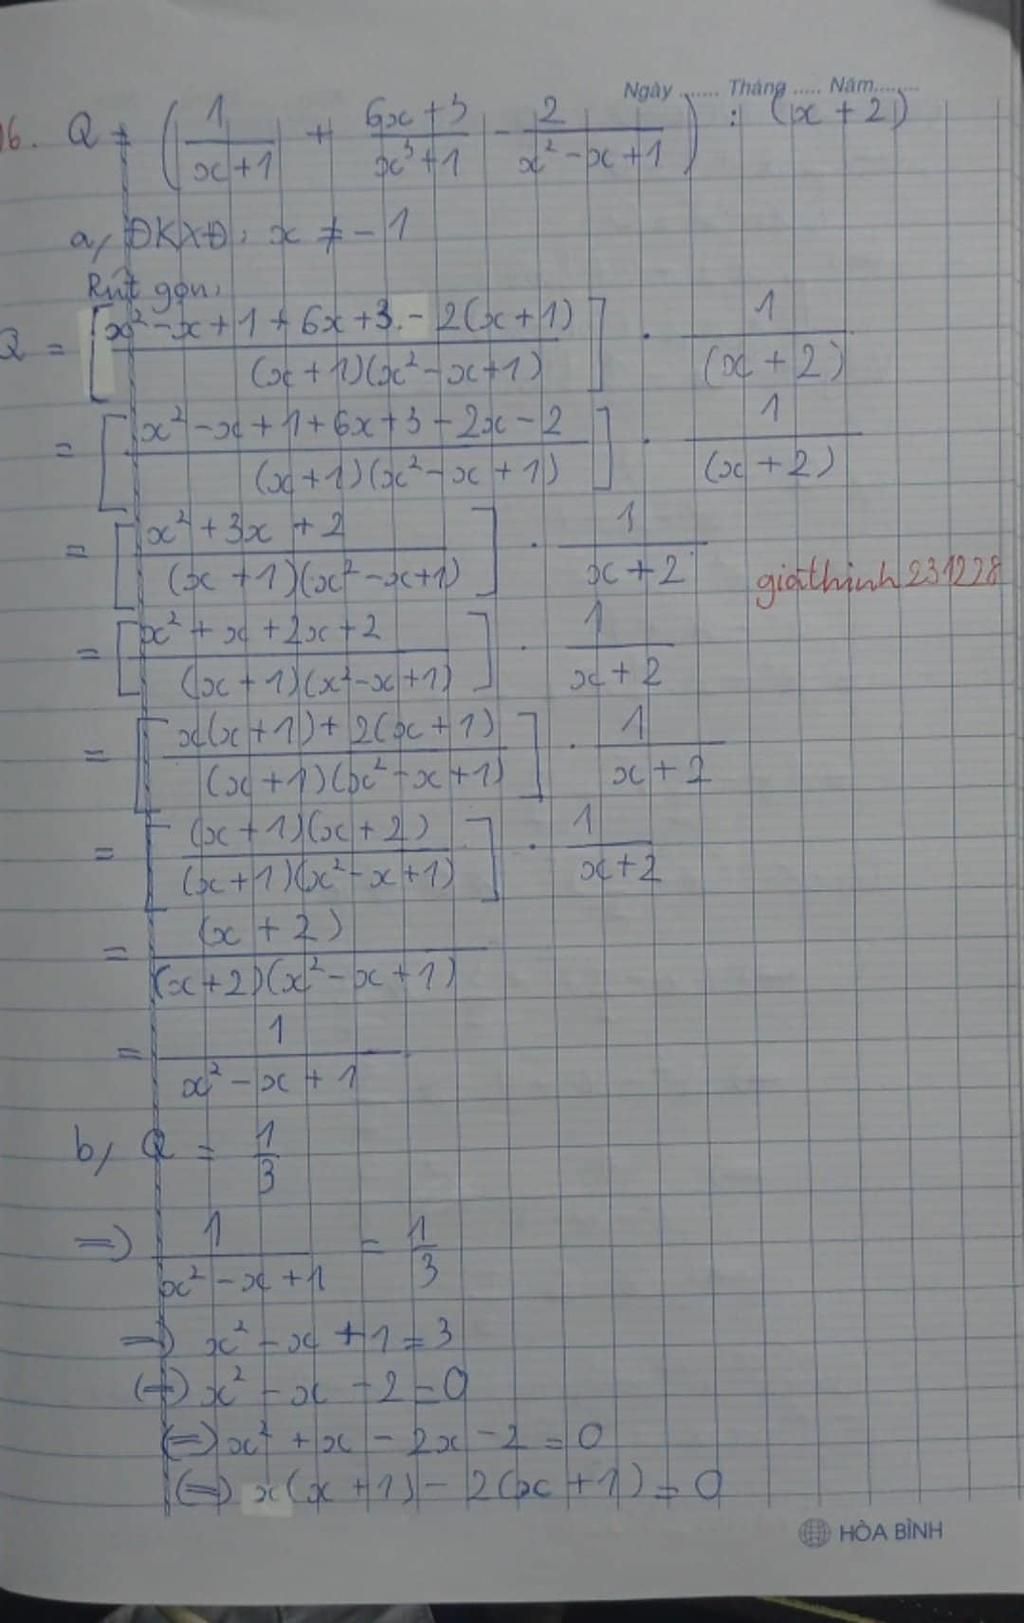 Ngày ....... Tháng ..... Năm........
16. Q = (1/(x+1) + (6x+3)/(x³+1) - 2/(x²-x+1)) : (x+2)
a, ĐKXĐ: x ≠ -1
Rút gọn:
Q = [(x²-x+1+6x+3-2(x+1))/((x+1)(x²-x+1))] . 1/(x+2)
= [(x²-x+1+6x+3-2x-2)/((x+1)(x²-x+1))] . 1/(x+2)
= [(x²+3x+2)/((x+1)(x²-x+1))] . 1/(x+2)
giathinh231228
= [(x²+x+2x+2)/((x+1)(x²-x+1))] . 1/(x+2)
= [(x(x+1)+2(x+1))/((x+1)(x²-x+1))] . 1/(x+2)
= [((x+1)(x+2))/((x+1)(x²-x+1))] . 1/(x+2)
= (x+2)/((x+2)(x²-x+1))
= 1/(x²-x+1)
b, Q = 1/3
=> 1/(x²-x+1) = 1/3
=> x²-x+1=3
(=) x²-x-2=0
(=) x²+x-2x-2=0
(=) x(x+1)-2(x+1)=0
HÒA BÌNH